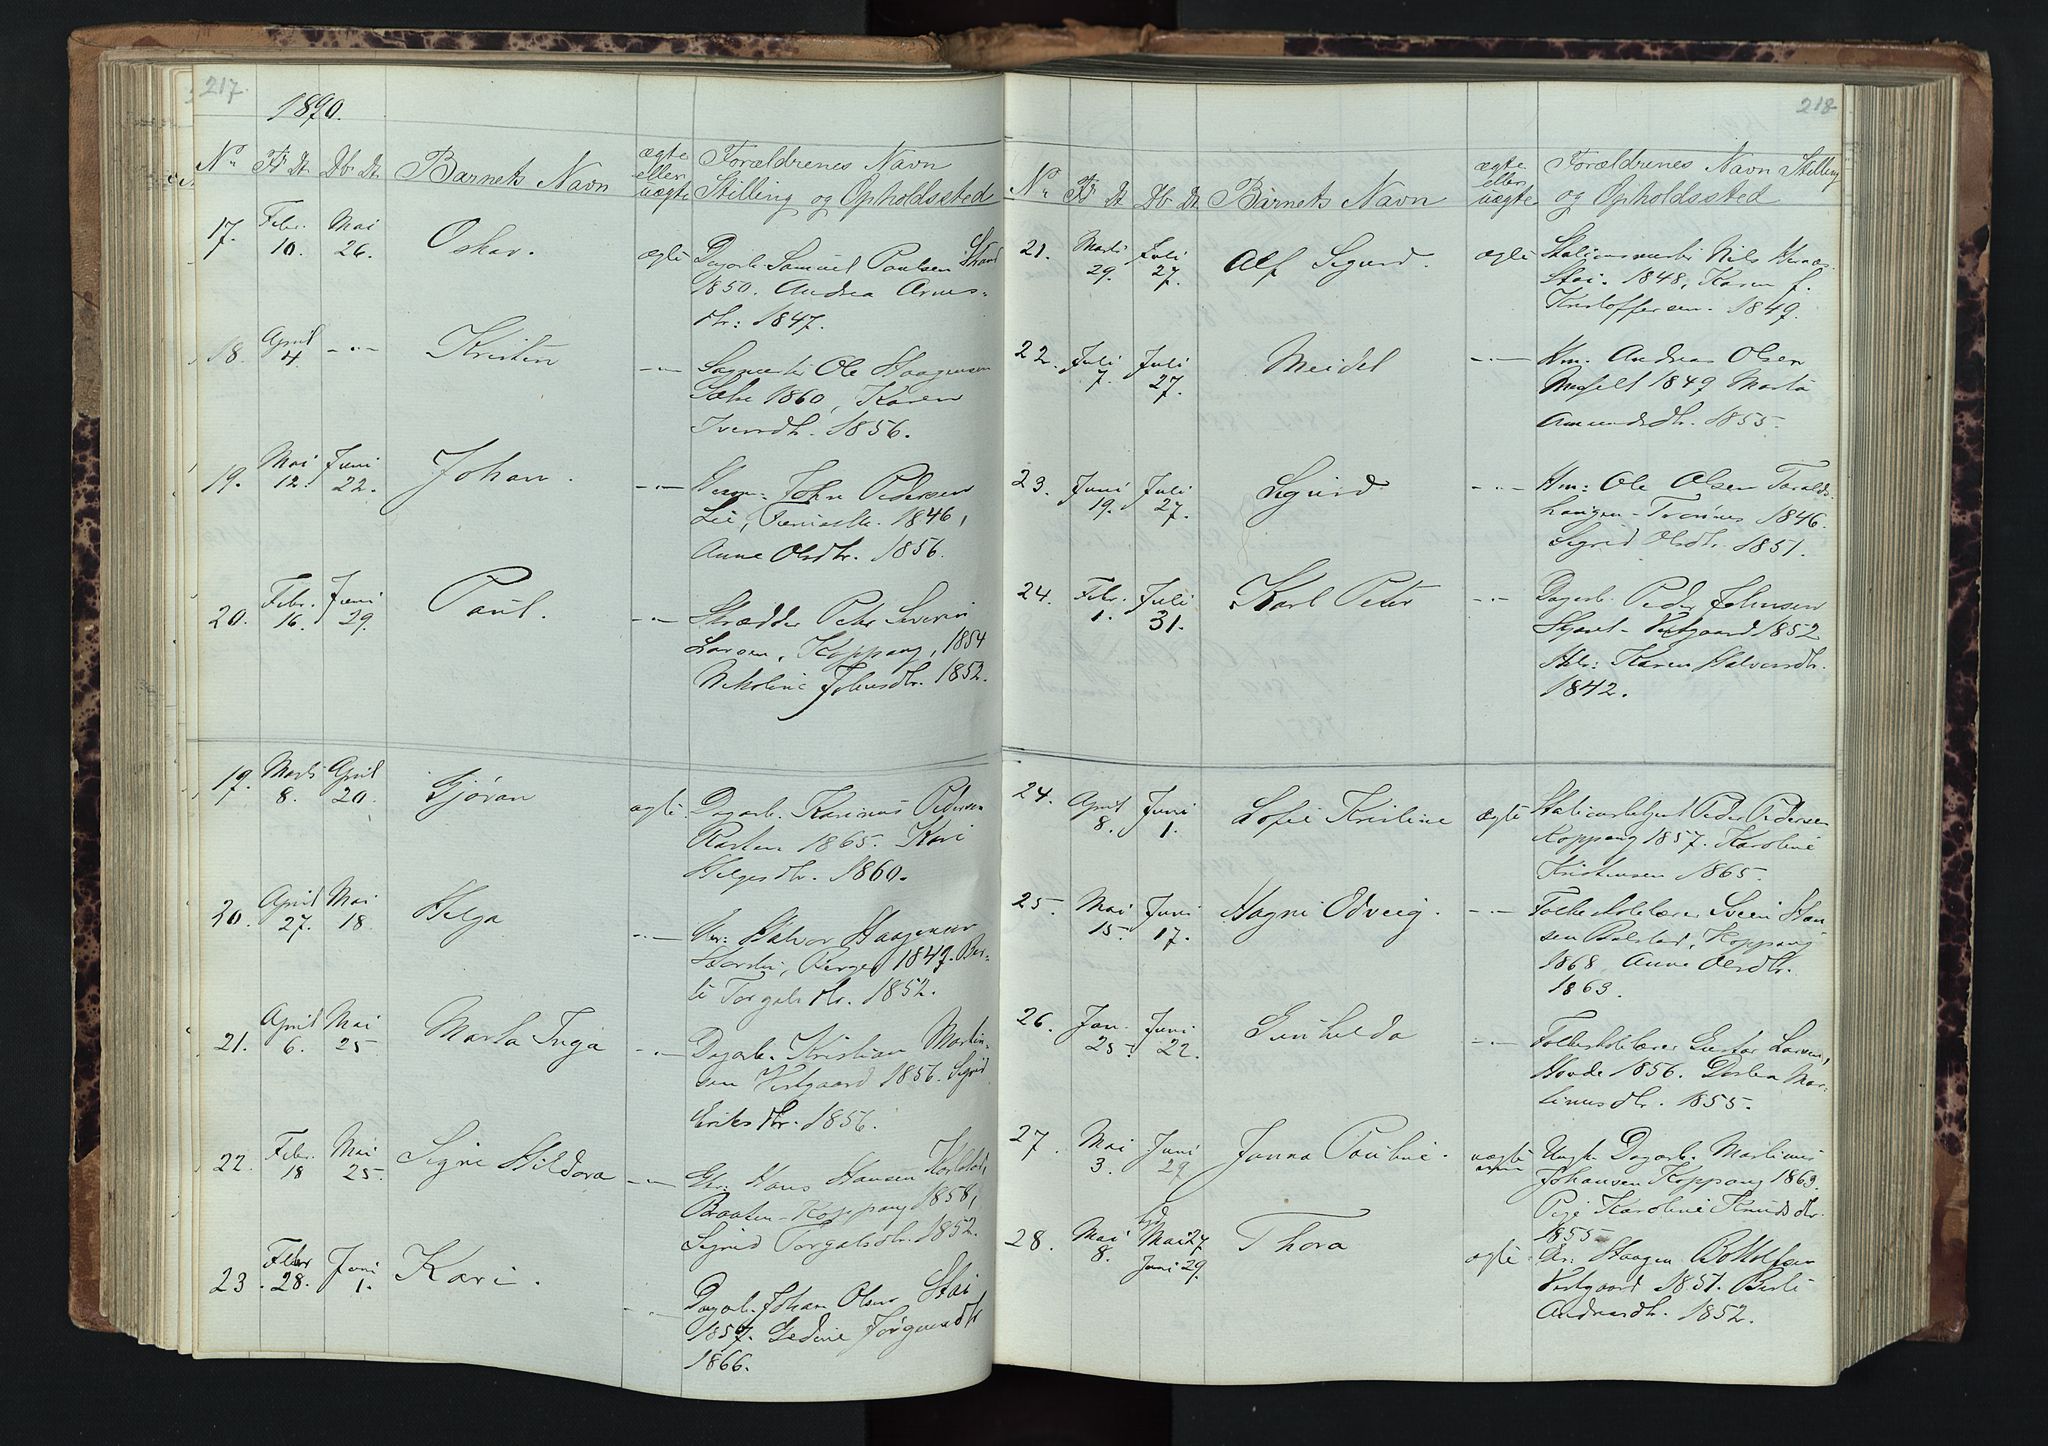 217.
1890.
No Fd Dt. Db. Dt. Barnets Navn ægte eller uægte Forældrenes Navn
Stilling og Opholdssted
17. Febr. 10. Mai 26. Oskar. ægte Dagarb. Samuel Paulsen Strand
1850. Andrea Arnes-
dtr: 1847.
18. April 4. -"- Kristen -"- Ole Haagensen
1860, Karen
Iversdtr. 1856.
19. Mai 12. Juni 22. Johan. -"- John Pedersen
Lie, 1846,
Anne Olsdtr. 1856.
20. Febr. 16. Juni 29. Paul. -"- Skrædder Peter Severin
Larsen, Koppang, 1854
Nikoline Johnsdtr. 1852.
19. Marts 8. April 20. Gjøran ægte. Dagarb. Karinus Pedersen
1865. Kari
Helgesdtr. 1860.
20. April 27. Mai 18. Helga -"- Gbr: Halvor Haagensen
1847. Ber-
te Torgalsdtr. 1852.
21. April 6. Mai 25. Marta Inga -"- Dagarb. Kristian Martin-
sen Vestgaard 1856. Sigrid
Eriksdtr. 1856.
22. Febr. 18 Mai 25. Signe Hildora -"- Gbr: Hans Hansen
Braaten-Koppang 1858,
Sigrid Torgalsdtr. 1852.
23. Febr. 28. Juni 1. Kari. -"- Dagarb. Johan Olsen Stai
1857. Gedine Jørgensdtr
1866.
218
No Fd Dt Db. Dt. Barnets Navn ægte eller uægte Forældrenes Navn Stilling
og Opholdssted
21. Marts 29. Juli 27. Alf Sigurd. ægte Stationsmester Nils
Stai. 1848, Karen f.
Kristoffersen. 1849.
22. Juli 7. Juli 27. Meidel -"- Hm. Andreas Olsen
1849 Marta
Amundsdtr. 1855.
23. Juni 19. Juli 27. Sigurd -"- Hm: Ole Olsen
Trønnes 1846.
Sigrid Olsdtr. 1851.
24. Febr. 1. Juli 31. Karl Peter -"- Dagarb. Peder Johnsen
Vestgaard 1852
Karen Halvorsdtr.
1842.
24. April 8. Juni 1. Sofie Kristine ægte Peder Pedersen
Koppang 1857. Karoline
Kristensen 1865.
25. Mai 15. Juni 17. Hagni Edveig. -"- Folkeskolelærer Svein Han-
sen Bolstad, Koppang
1868. Anne Olsdtr.
1863.
26. Jan. 25. Juni 22. Gunhilda -"- Folkeskolelærer Gustav Larsen,
Hovde 1856. Dorthea Mar-
tinusdtr. 1855.
27. Mai 3. Juni 29. Janna Pauline. uægte Ungk. Dagarb. Martinus
Johansen Koppang 1863.
Pige Karoline Knudsdtr.
1855
28. Mai 8. hjd Mai 27 Juni 29. Thora ægte. Gbr: Haagen Botolfsen
Vestgaard 1851. Berte
Andreasdtr. 1852.